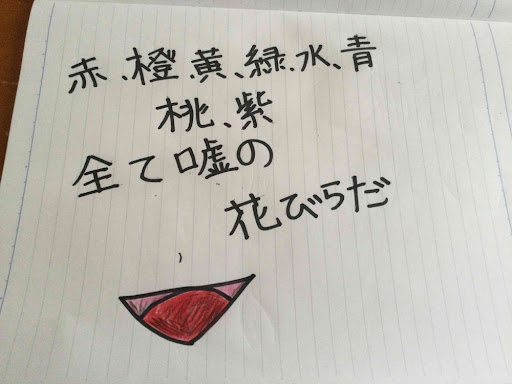 赤、橙、黄、緑、水、青
桃、紫
全て嘘の
花びらだ